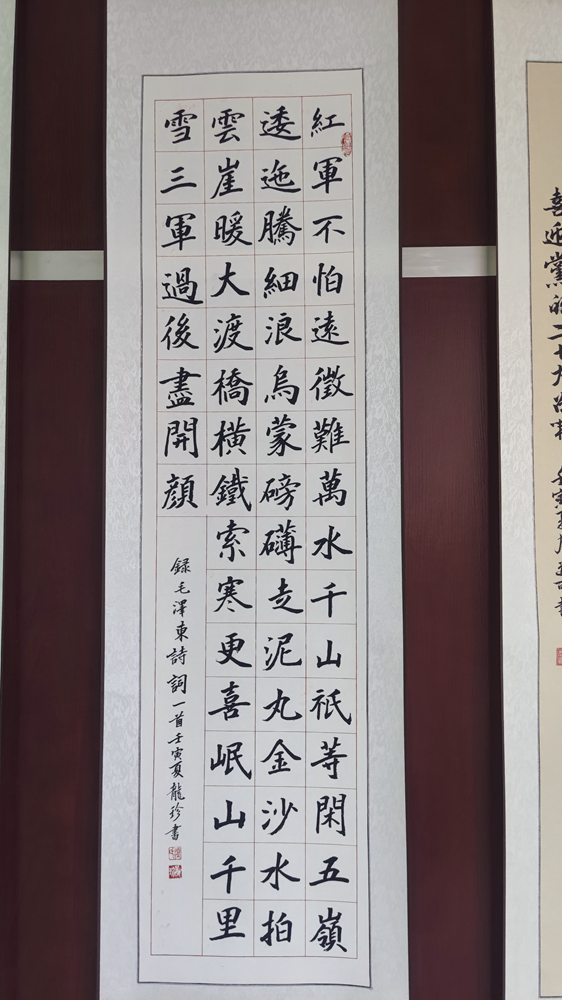 紅軍不怕遠徵難萬水千山祇等閑五嶺
逶迤騰細浪烏蒙磅礴走泥丸金沙水拍
雲崖暖大渡橋橫鐵索寒更喜岷山千里
雪三軍過後盡開顏
錄毛澤東詩詞一首壬寅夏龍珍書